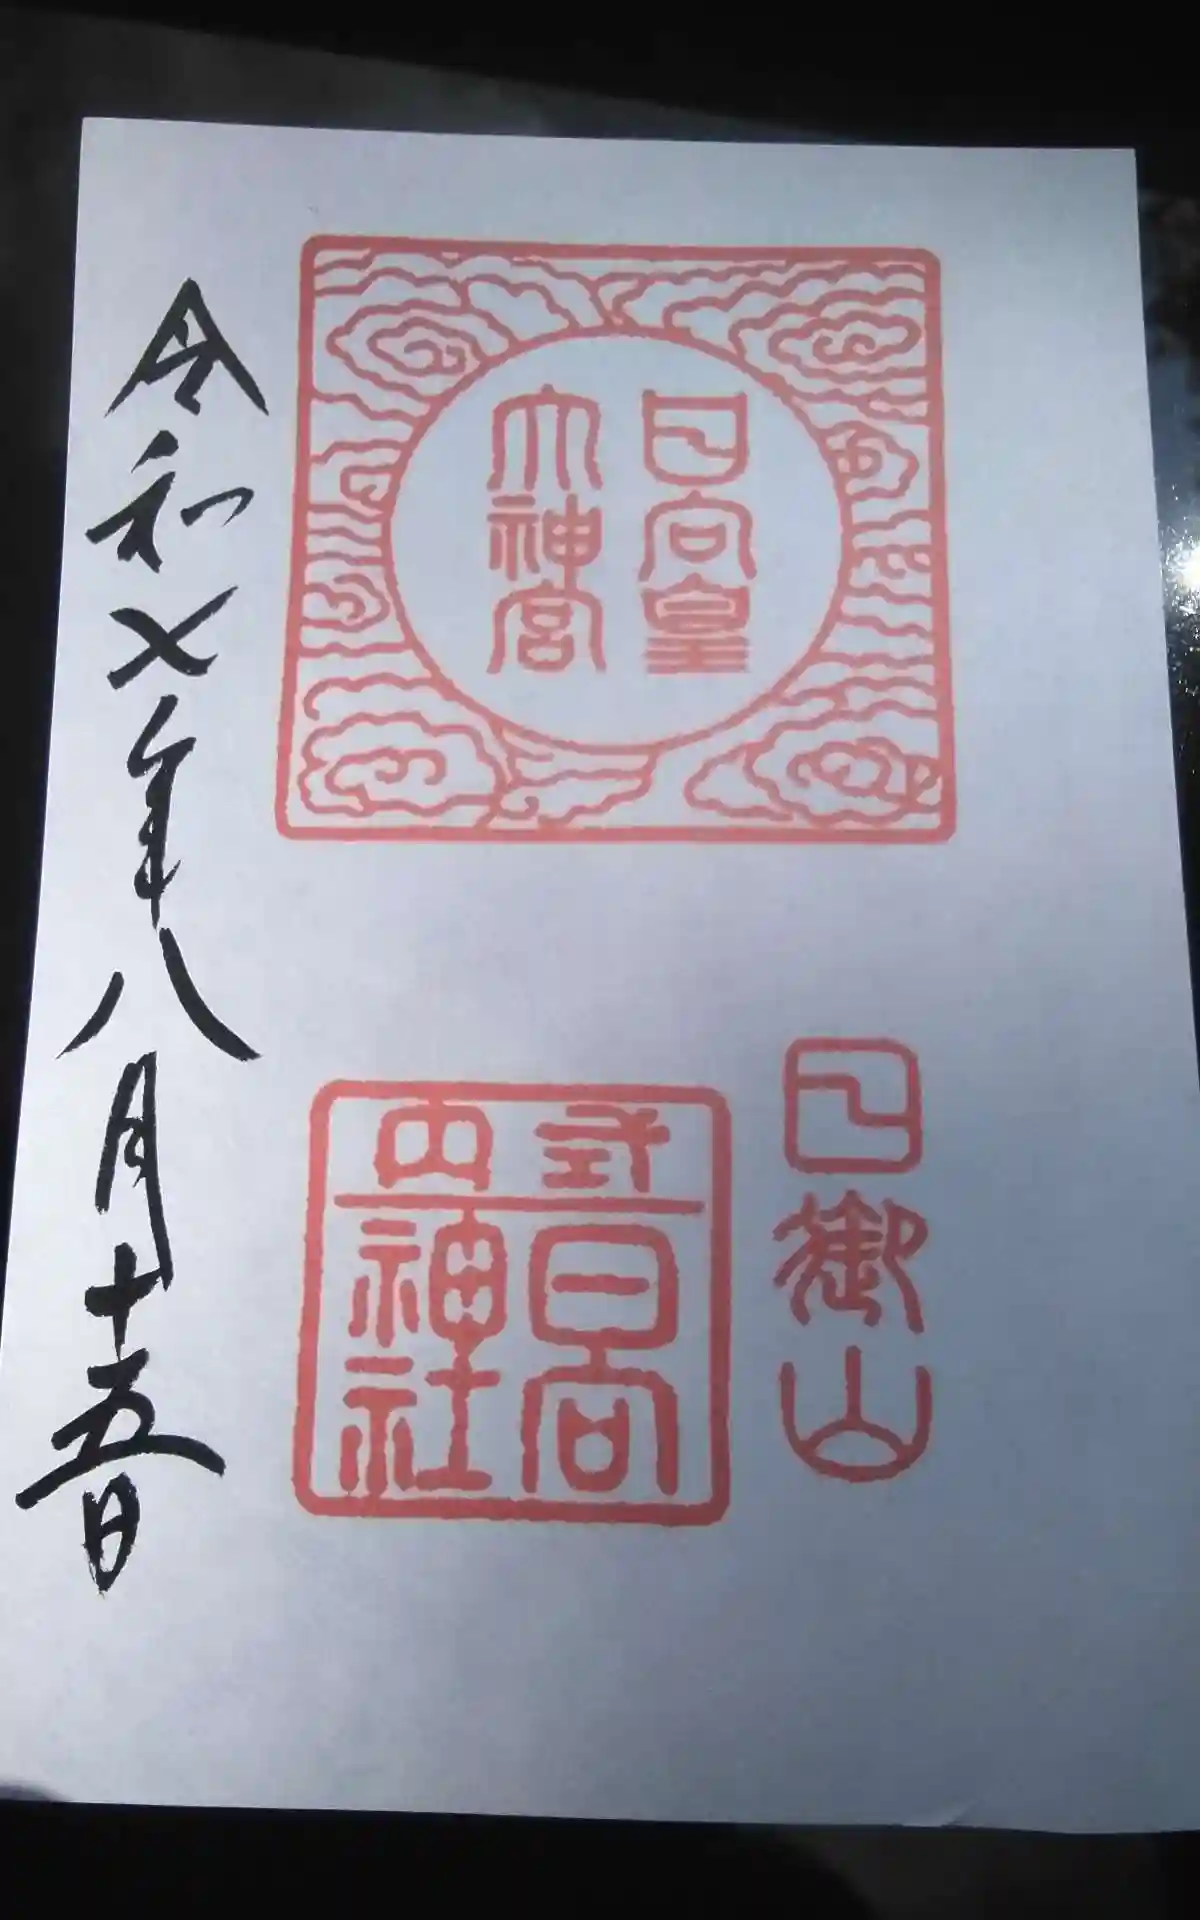 日向皇
大神宮
日御山
式内
日向
神社
令和七年八月十五日